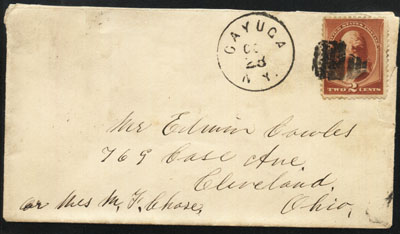 CAYUGA
OC
28
N.Y.
TWO 2 CENTS
Mr Edwin Cowles
769 Case Ave,
Cleveland.
or Mrs M. F. Chase, Ohio,